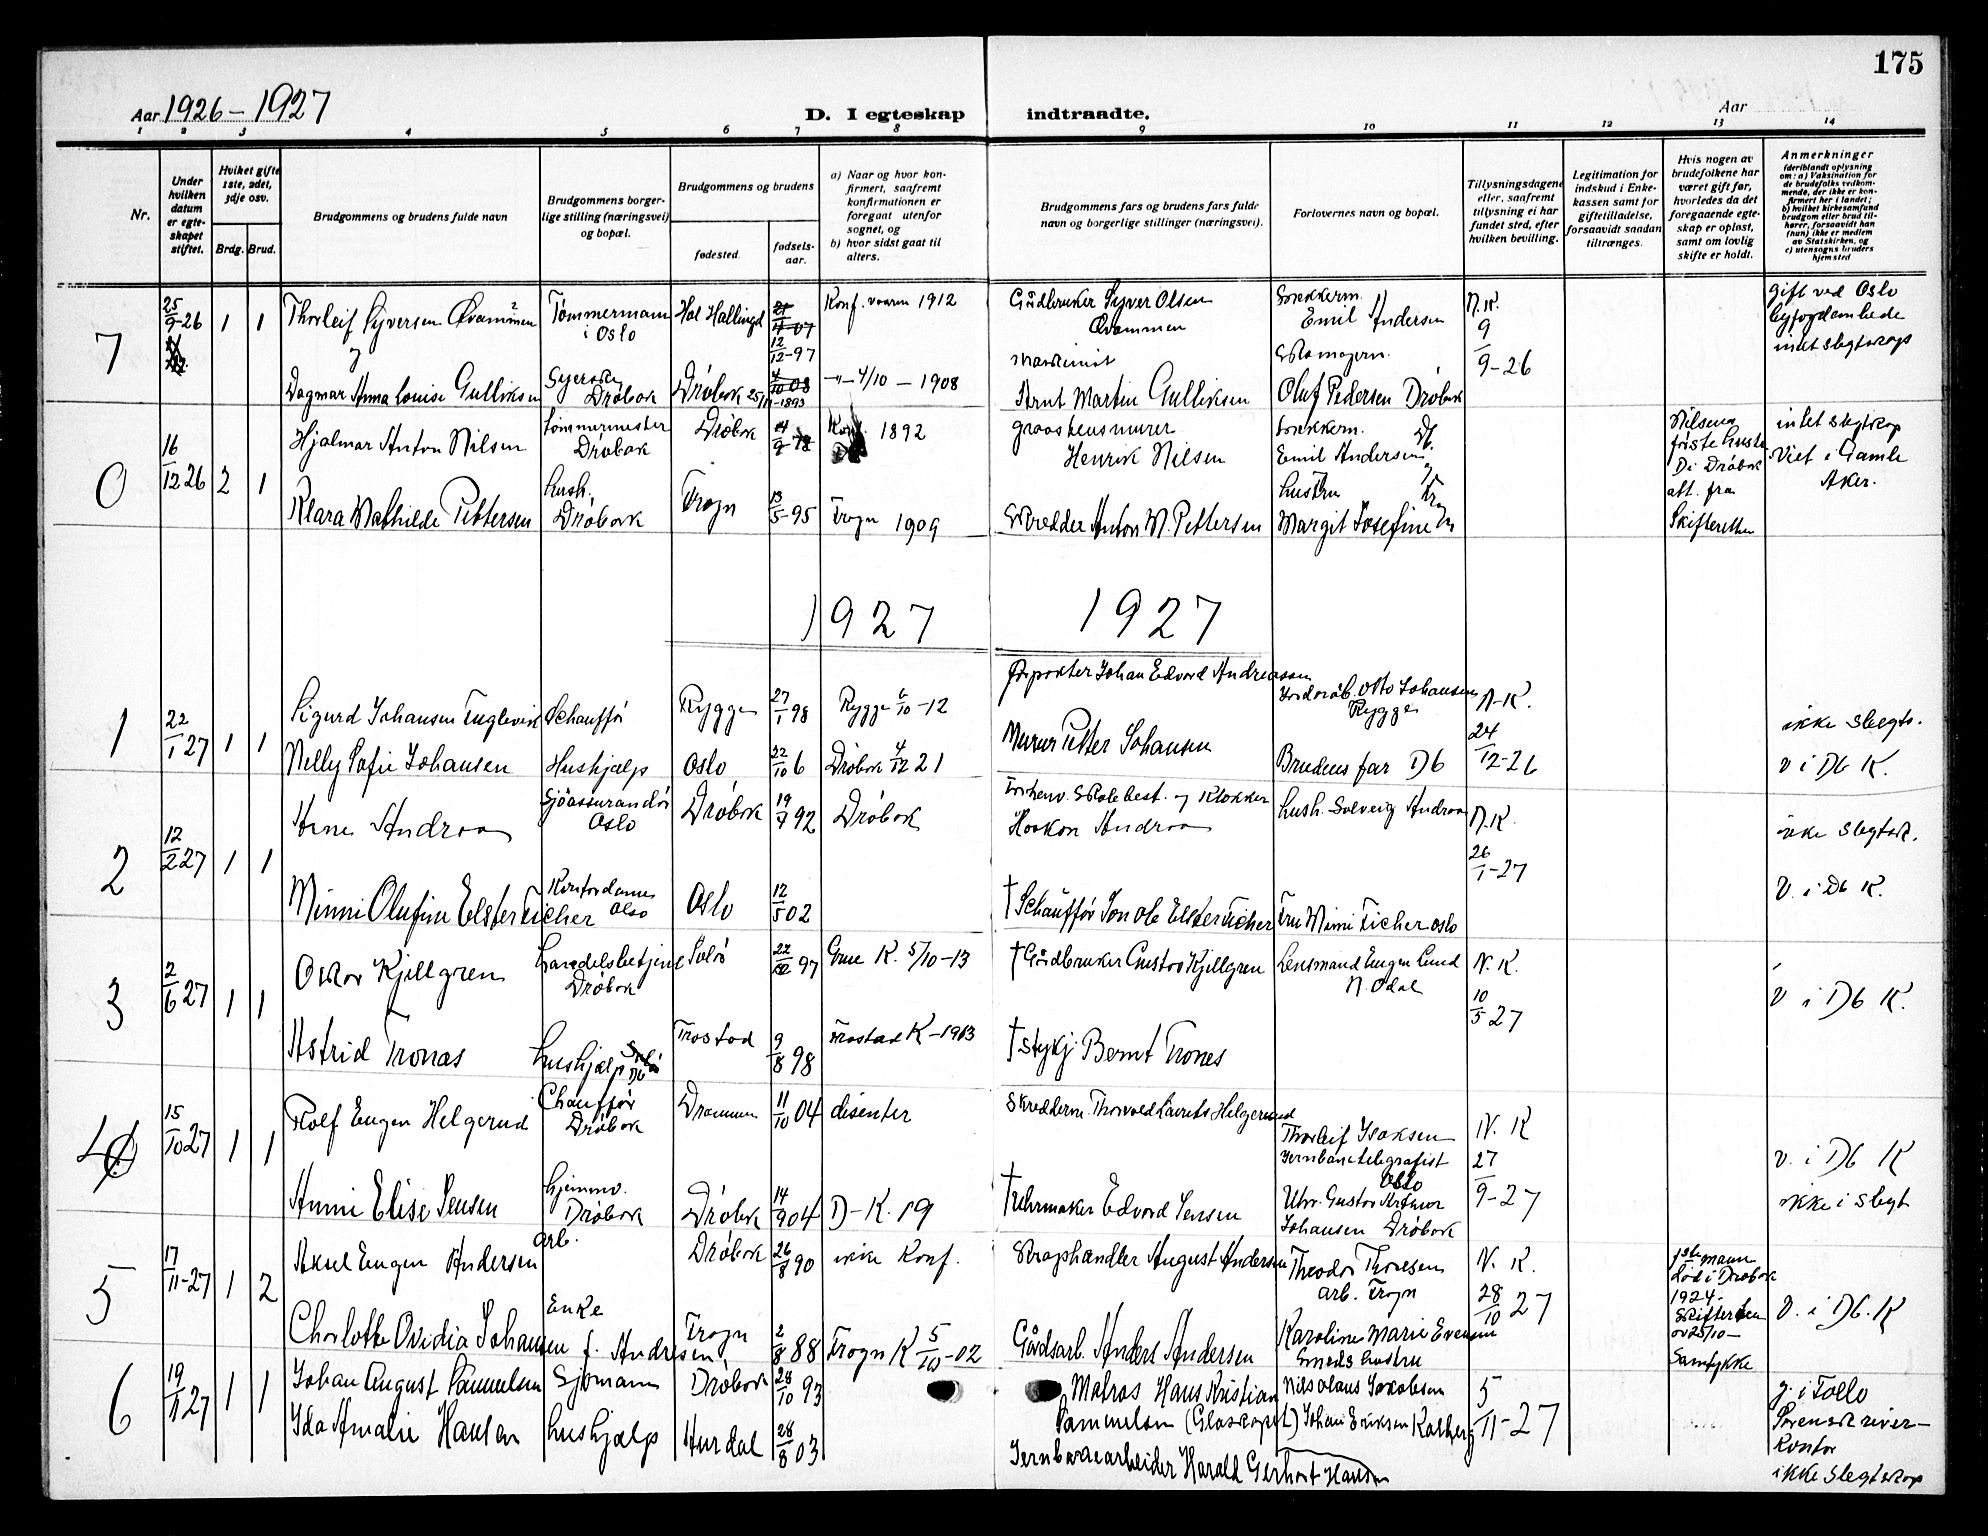 175
Aar 1926-1927
D. I egteskap indtraadte.
Aar
1 2 3 4 5 6 7 8 9 10 11 12 13 14
Nr.
Under hvilken datum er egteskapet stiftet.
Hvilket gifte 1ste, 2det, 3dje osv.
Brdg. Brud.
Brudgommens og brudens fulde navn
Brudgommens borgerlige stilling (næringsvei) og bopæl.
Brudgommens og brudens
fødested.
fødselsaar.
a) Naar og hvor konfirmert, saafremt konfirmationen er foregaat utenfor sognet, og
b) hvor sidst gaat til alters.
Brudgommens fars og brudens fars fulde navn og borgerlige stillinger (næringsvei).
Forlovernes navn og bopæl.
Tillysningsdagene eller, saafremt tillysning ei har fundet sted, efter hvilken bevilling.
Legitimation for indskud i Enkekassen samt for giftetilladelse, forsaavidt saadan tiltrænges.
Hvis nogen av brudefolkene har været gift før, hvorledes da det foregaaende egteskap er opløst, samt om lovlig skifte er holdt.
Anmerkninger
(deriblandt oplysning om: a) Vaksination for de brudefolks vedkommende, der ikke er konfirmert her i landet; b) hvilket kirkesamfund brudgom eller brud tilhører, forsaavidt han (hun) ikke er medlem av Statskirken, og c) utensogns bruders hjemsted
7 25/9-26 1 1 Thorleif Syversen Qvammen Tømmermann i Oslo Hol Hallingd 12/12-97 Konf. vaaren 1912 Gårdbruker Syver Olsen Qvammen Emil Andersen N.K. 9/9-26 gift ved Oslo byfogdembede intet slegtskap
Dagmar Anna Louise Gulliksen Syerske Drøbak Drøbak 25/11-1893 -"- 4/10 - 1908 Maskinist Arnt Martin Gulliksen Oluf Pedersen Drøbak
0 16/12 26 2 1 Hjalmar Anton Nilsen Tømmermester Drøbak Drøbak 1892 graastensmurer Henrik Nilsen Emil Andersen Nilsens første hustr. D i Drøbak att. fra Skifteretten intet slegtskap Viet i Gamle Aker.
Klara Mathilde Pettersen Hush. Drøbak Frogn 13/5-95 Frogn 1909 Skredder Anton M. Pettersen hustru Margit Josefine
1927 1927
1 22/1 27 1 1 Sigurd Johansen Fuglevik Schauffør Rygge 27/1 98 Rygge 6/10-12 Johan Edvard Andreassen Otto Johansen Rygge N.K. 24/12-26 ikke slegts.
Nelly Sofie Johansen Hushjælp Oslo 22/10 6 Drøbak 4/12 21 Murer Petter Johansen Brudens far Db v i Db K.
2 12/2 27 1 1 Arne Andraa Sjöassurandör Oslo Drøbak 19/7 92 Drøbak Forhenv. Skolebest. og Klokker Haakon Andraa hush. Solveig Andraa N.K. 26/1-27 ikke slegtsk.
Minni Olufine Elster Ficher Kontordame Oslo Oslo 12/5 02 † Schauffør Elster Ficher Fru Mimi Ficher Oslo V. i Db K.
3 2/6 27 1 1 Oskar Kjellgren Handelsbetjent Drøbak Solør 97 Grue K. 5/10-13 † Gårdbruker Gustav Kjellgren Lensmand Eugen Lund N. Odal N.K. 10/5 27 v i Db K.
Astrid Tronæs hushjælp Trøstad 9/8 98 K-1913 † Bernt Trones
4 15/10 27 1 1 Rolf Eugen Helgerud Chauffør Drøbak Drammen 11/10 04 disenter Skredderm. Thorvald Laurits Helgerud Thorleif Isaksen Jernbanetelegrafist Oslo N. K 27/9-27 v. i Db K
Anni Elise Jensen hjemmev. Drøbak Drøbak 14/9 04 D-K. 19 † Uhrmaker Edvard Jensen Uhr. Gustav Arthur Johansen Drøbak ikke i slegt
5 17/11-27 1 2 Aksel Eugen Andersen arb. Drøbak 26/8 90 ikke Konf. Skraphandler August Andersen Theodor Thoresen arb. Frogn N. K. 28/10 27 1ste mann død i Drøbak 1924. Skifteretten av 25/10- Samtykke V. i Db. K
Charlotte Ovidia Johansen f. Andersen Enke Frogn 2/8 88 Frogn K 5/10-02 Gårdsarb. Anders Andersen Karoline Marie Evensen Smeds hustru
6 19/11 27 1 1 Johan August Sammelsen Sjømann Drøbak 28/10 93 Matros Hans Kristian Sammelsen Nils Olaus Jakobsen 5/11-27 g. i Follo Sorenskriverkontor ikke slegtskap
Ida Amalie Hansen hushjælp Hurdal 28/8 03 Johan Eriksen Kolberg Jernbanearbeider Harald Gerhart Hansen